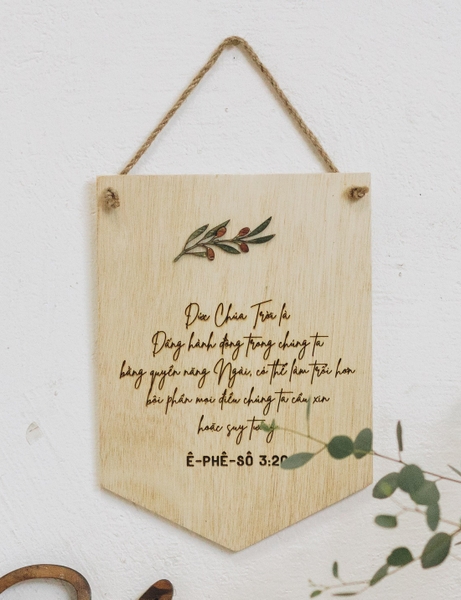 Đức Chúa Trời là
Đấng hành động trong chúng ta
bằng quyền năng Ngài, có thể làm trổi hơn
bôi phần mọi điều chúng ta cầu xin
hoặc suy tưởng
Ê-PHÊ-SÔ 3:20